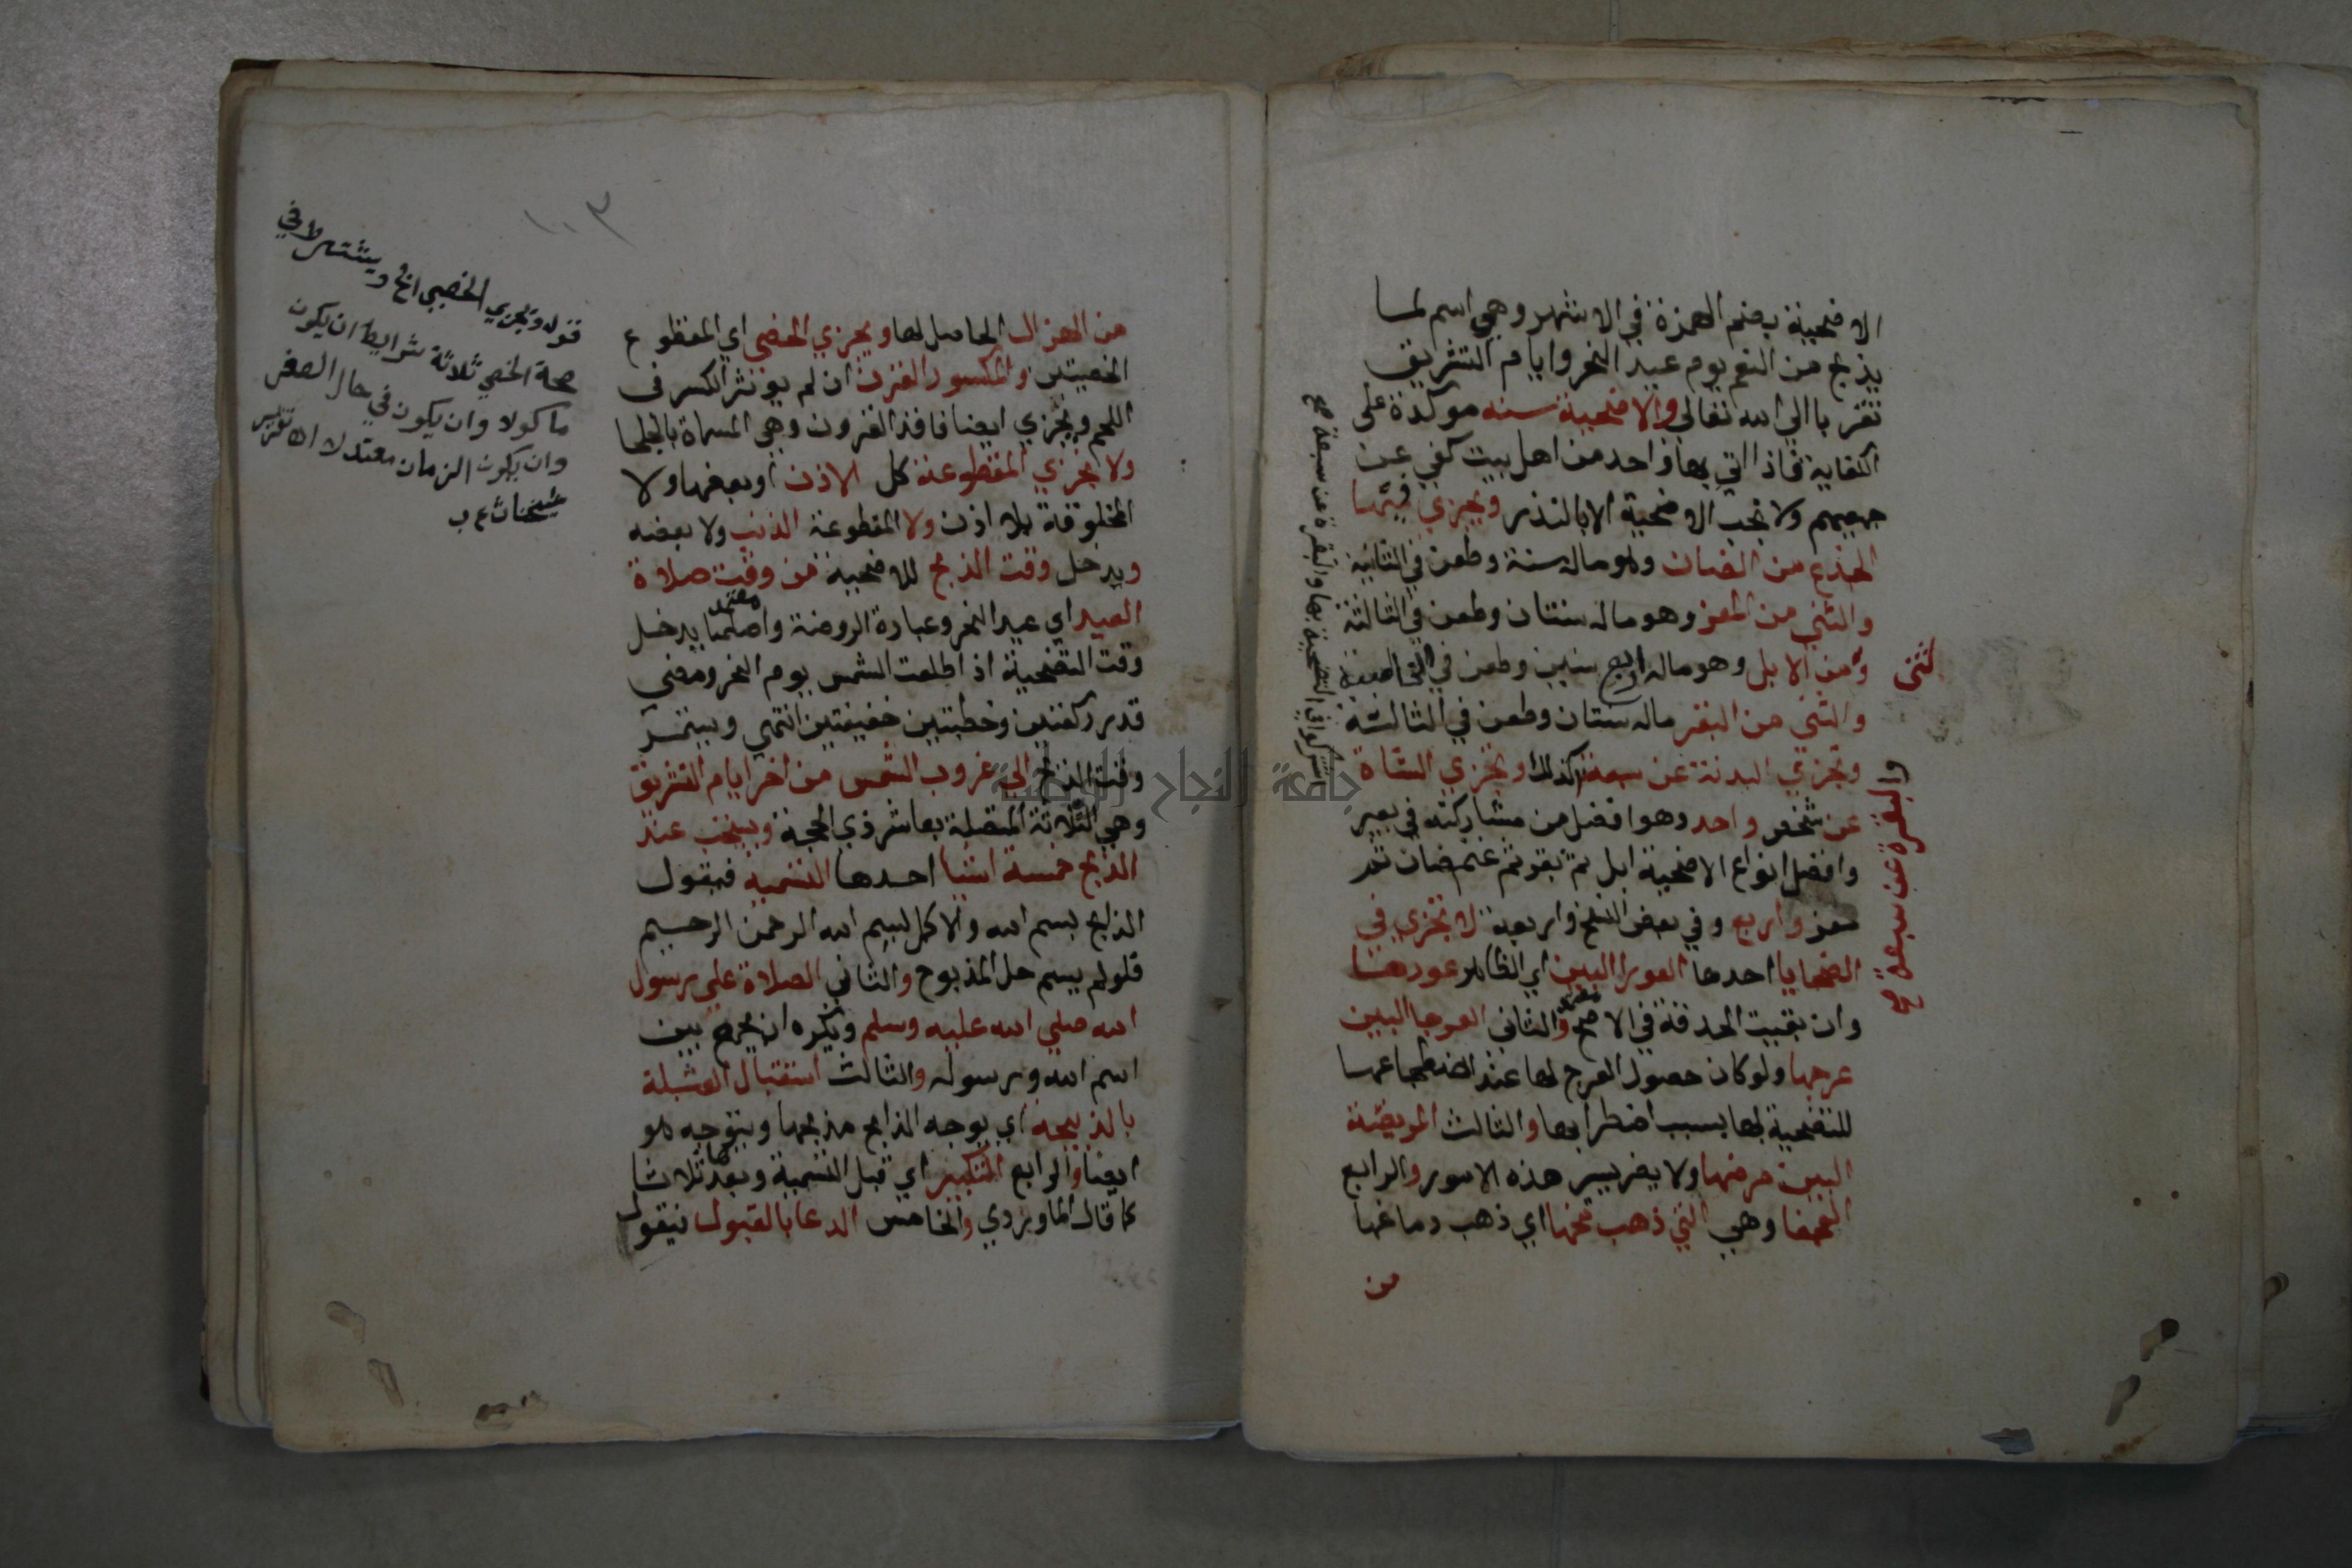 الاضحية بضم الهمزة في الاشهر وهي اسم لما
يذبح من النعم يوم عيد النحر وايام التشريق
تقربا الي الله تعالى والاضحية سنه موكدة على
الكفاية فاذا اتي بها واحد من اهل بيت كفي عن
جميعهم ولا تجب الاضحية الا بالنذر ويجزي فيها
الجذع من الضان وهو ماله سنة وطعن في الثانية
والثني من المعز وهو ماله سنتان وطعن في الثالثة
ومن الابل وهو ماله اربع سنين وطعن في
والثني من البقر ماله سنتان وطعن في الثالثة
وتجزي البدنة عن سبعة كذلك وتجزي الشاة
عن شخص واحد وهو افضل من مشاركته في بعير
وافضل انواع الاضحية ابل ثم بقر ثم غنم ضان ثم
معز واربع وفي بعض النسخ واربعة لا تجزي في
الضحايا احدها العورا البين اي الظاهر عورها
وان بقيت الحدقة في الاصح والثاني العرجا البين
عرجها ولو كان حصول العرج لها عند اضطجاعها
للتضحية بها بسبب اضطرابها والثالث المريضة
البين مرضها ولا يضر يسير هذه الامور والرابع
العجفا وهي التي ذهب مخها اي ذهب دماغها
من
والبقرة عن سبعة صح
اشتركوا في التضحية بها والبقرة عن سبعة صح
١٠٣
من الهزال الحاصل لها ويجزي الخصي اي المقطوع
الخصيتين والمكسور القرن ان لم يوثر الكسر في
اللحم ويجزي ايضا فاقد القرون وهي المسماة بالجلحا
ولا تجزي المقطوعة كل الاذن او بعضها ولا
المخلوقة بلا اذن ولا المقطوعة الذنب ولا بعضه
ويدخل وقت الذبح للاضحية من وقت صلاة
العيد اي عيد النحر وعبارة الروضة واصلها يدخل
معتمد
وقت التضحية اذا طلعت الشمس يوم النحر ومضي
قدر ركعتين وخطبتين خفيفتين انتهي ويستمر
وقت الذبح الي غروب الشمس من اخر ايام التشريق
وهي الثلاثة المتصلة بعاشر ذي الحجة ويستحب عند
الذبح خمسة اشيا احدها التسمية فيقول
الذابح بسم الله والاكمل بسم الله الرحمن الرحيم
فلو لم يسم حل المذبوح والثاني الصلاة علي رسول
الله صلي الله عليه وسلم ويكره ان يجمع بين
اسم الله ورسوله والثالث استقبال القبلة
بالذبيحة اي يوجه الذابح مذبحها ويتوجه هو
ايضا والرابع التكبير اي قبل التسمية وبعدها ثلاثا
كما قال الماوردي والخامس الدعا بالقبول فيقول
قوله ويجزي الخصي الخ ويشترط في
صحة الخصي ثلاثة شرايط ان يكون
ماكولا وان يكون في حال الصغر
وان يكون الزمان معتدلا
جامعة النجاح الوطنية